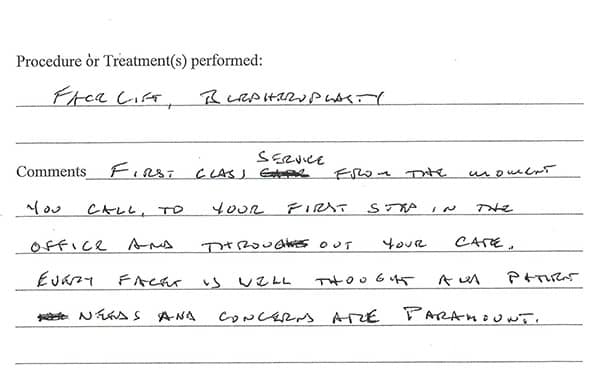 Procedure or Treatment(s) performed:
FACE LIFT, BLEPHEROPLASTY
Comments FIRST CLASS SERVICE FROM THE MOMENT
YOU CALL, TO YOUR FIRST STEP IN THE
OFFICE AND THROUGH OUT YOUR CARE.
EVERY FACET IS WELL THOUGHT AND PATIENT
NEEDS AND CONCERNS ARE PARAMOUNT.